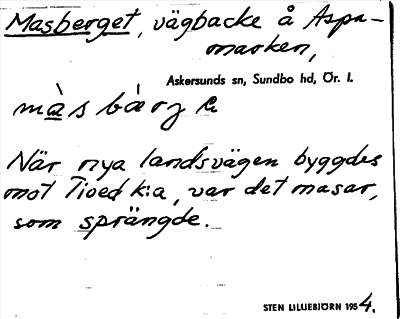 Masberget, vägbacke å Aspa-
marken,
Askersunds sn, Sundbo hd, Ör. l.
När nya landsvägen byggdes
mot Tived k:a, var det masar,
som sprängde.
STEN LILLIEBJÖRN 1954.